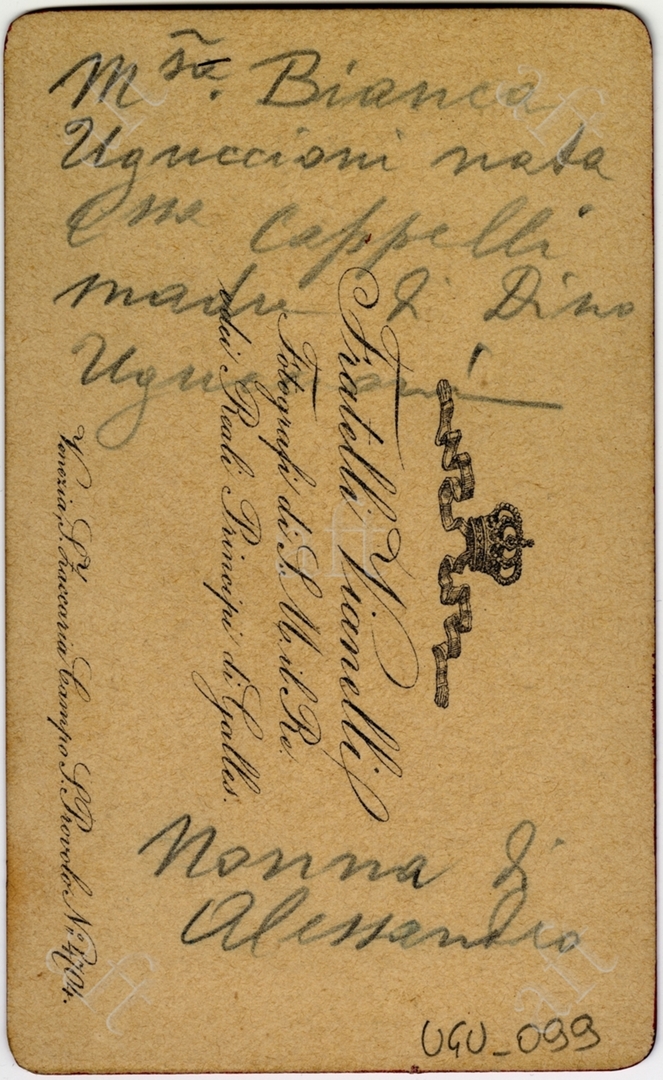 Msa. Bianca
Uguccioni nata
Cssa Cappelli
madre di Dino
Uguccioni
Fratelli Vianelli
Fotografi di S. M. il Re.
e dei Reali Principi di Galles.
Venezia, S. Zaccaria Campo S. Provolo No. 4704.
Nonna di
Alessandro
UGU_099
aft